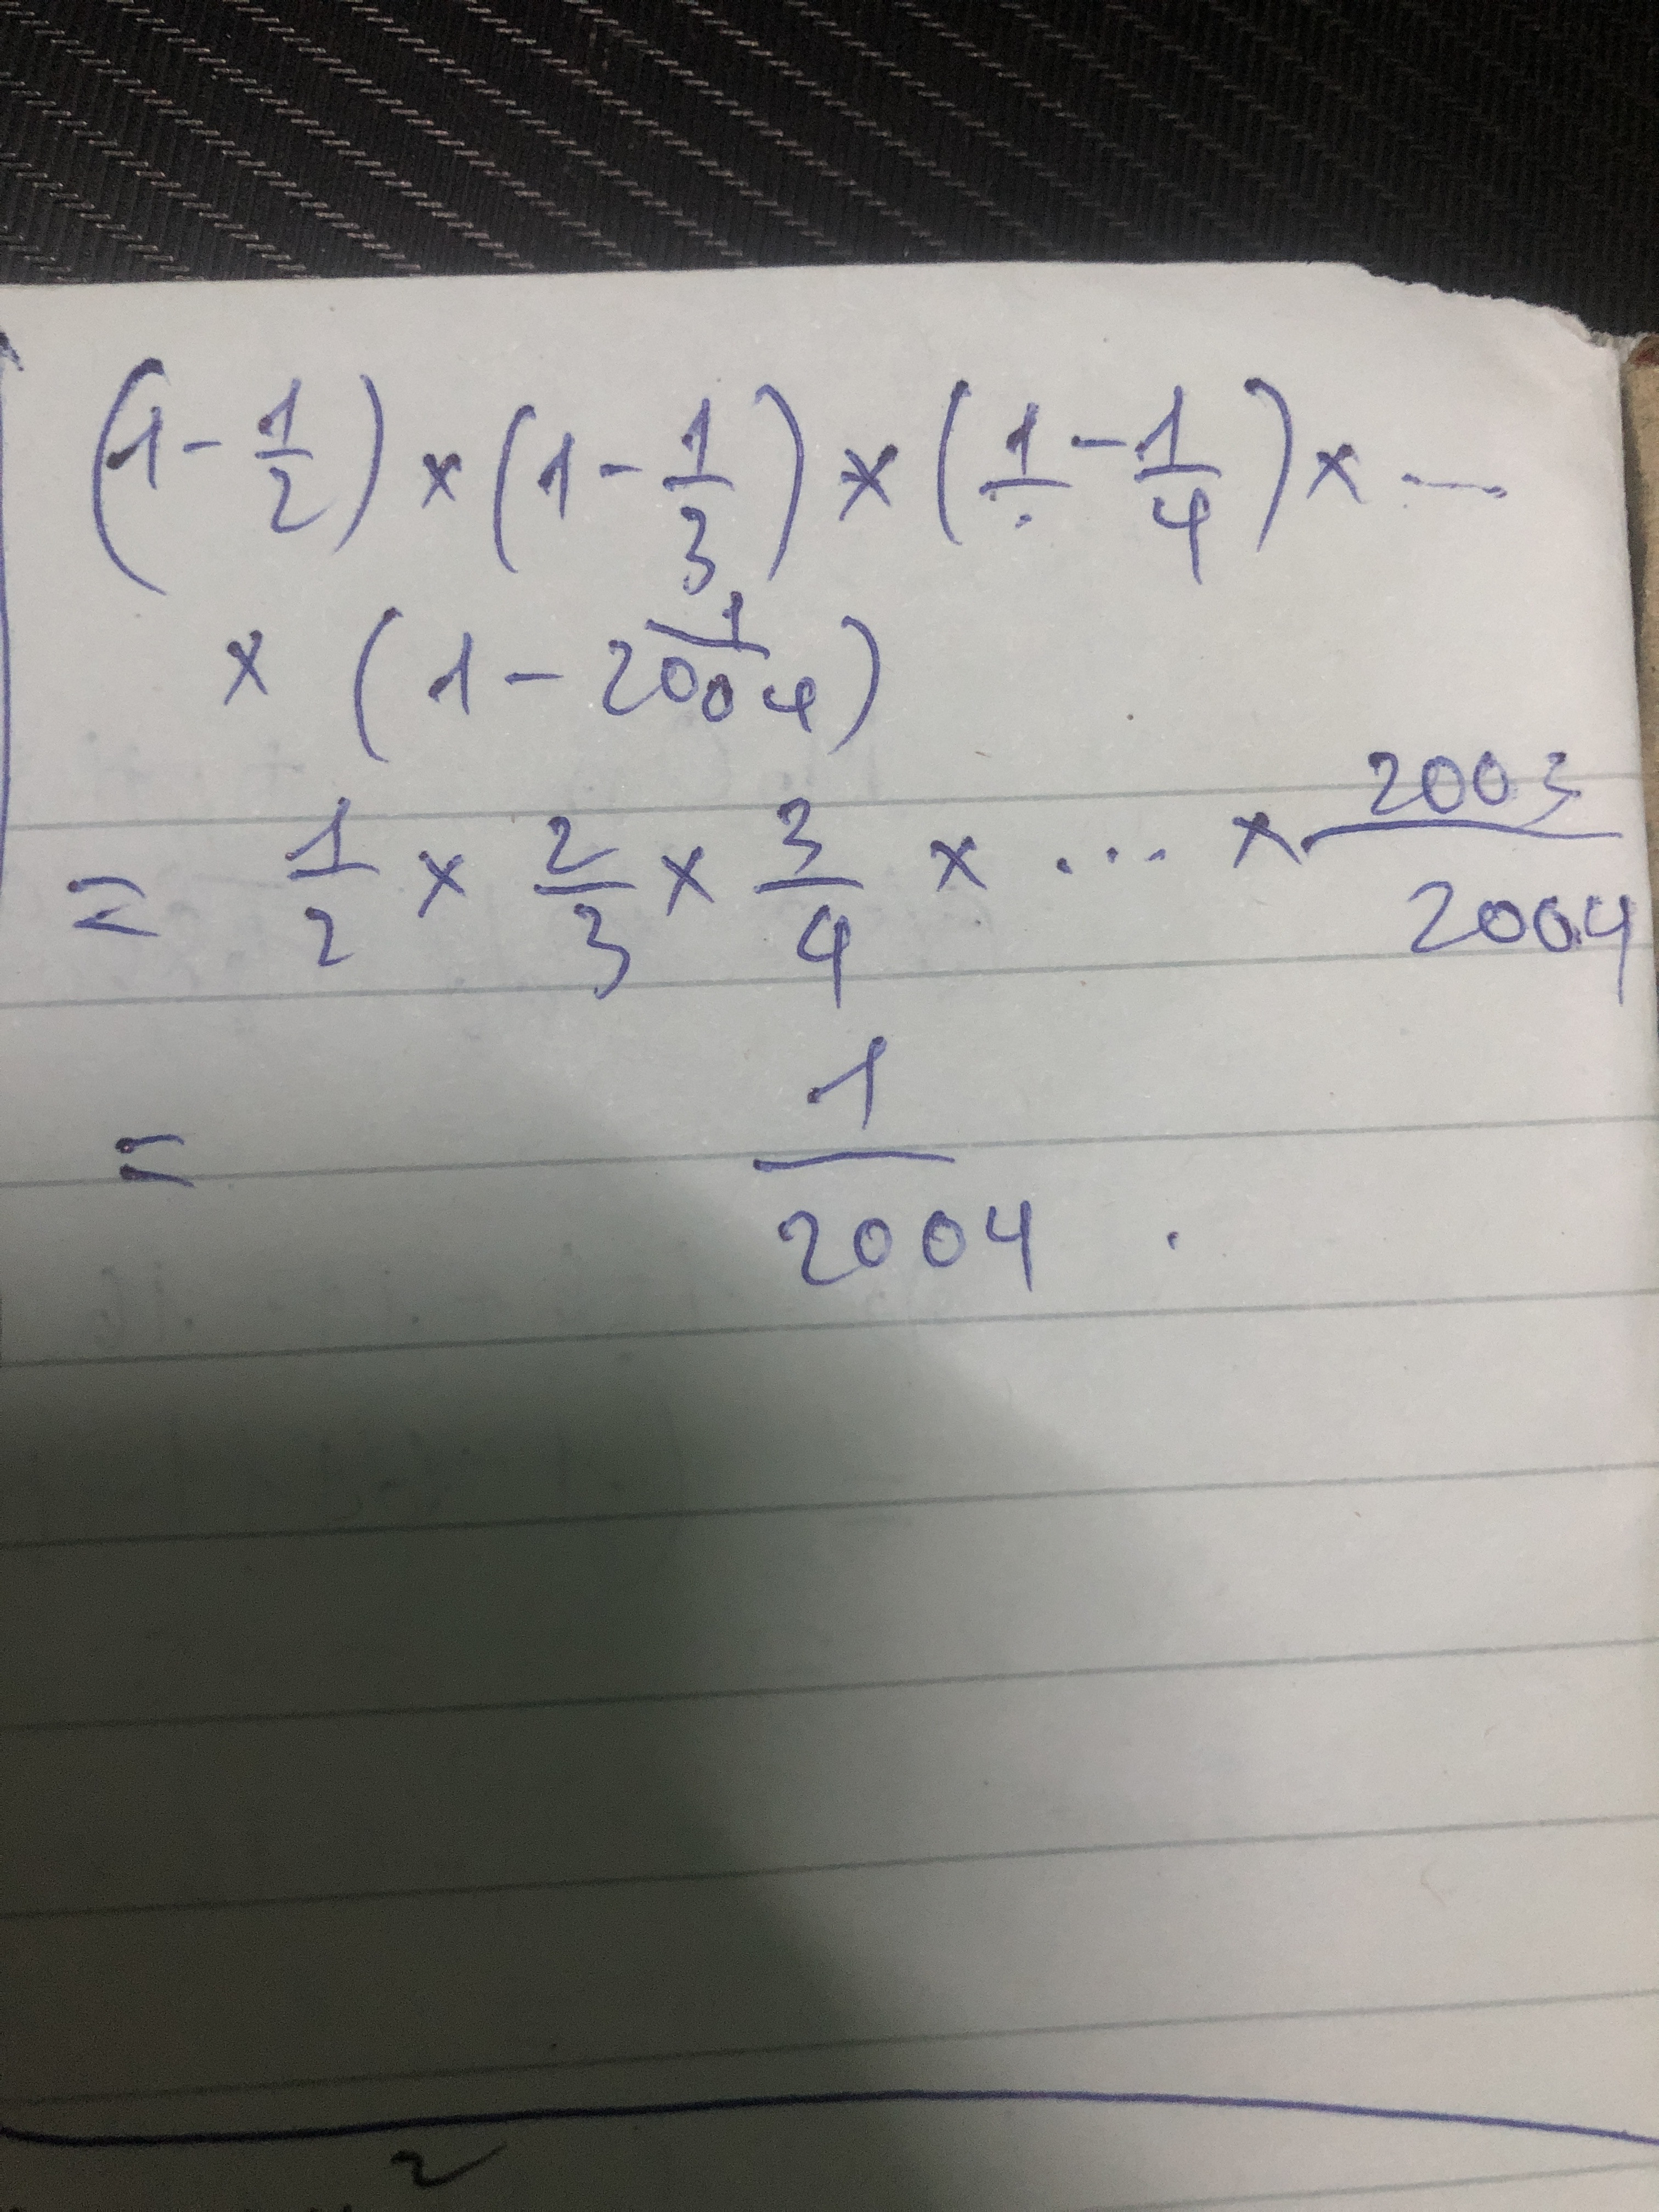 (1 - 1/2) × (1 - 1/3) × (1 - 1/4) × ...
× (1 - 1/2004)
= 1/2 × 2/3 × 3/4 × ... × 2003/2004
= 1/2004 .
2